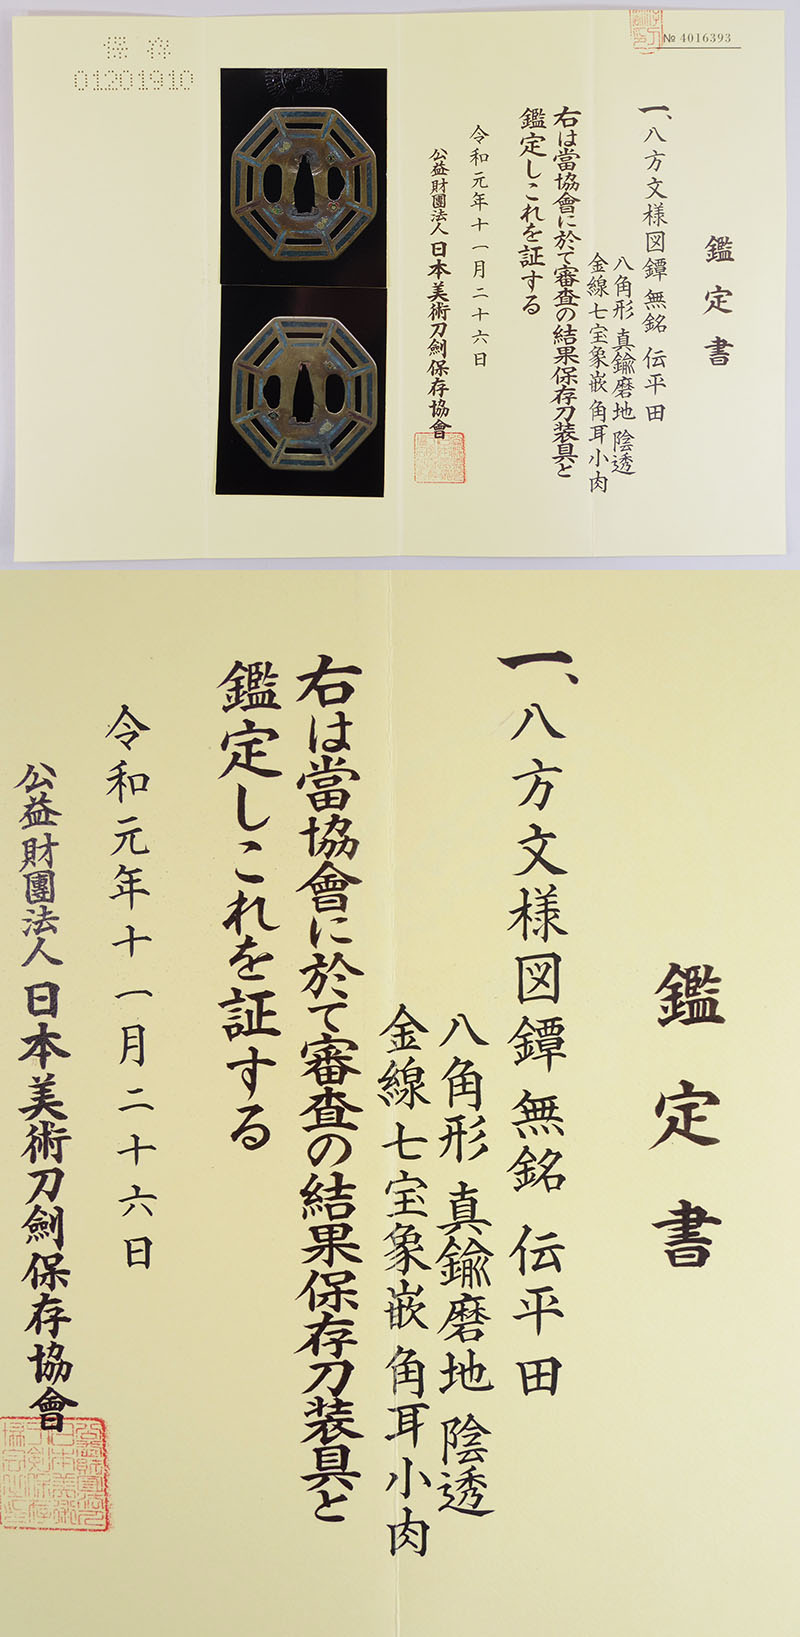 保存
01201910
№ 4016393
鑑定書
一、八方文様図鐔 無銘 伝平田
八角形 真鍮磨地 陰透
金線七宝象嵌 角耳小肉
右は當協會に於て審査の結果保存刀装具と
鑑定しこれを証する
令和元年十一月二十六日
公益財團法人 日本美術刀劍保存協會
鑑定書
一、八方文様図鐔 無銘 伝平田
八角形 真鍮磨地 陰透
金線七宝象嵌 角耳小肉
右は當協會に於て審査の結果保存刀装具と
鑑定しこれを証する
令和元年十一月二十六日
公益財團法人 日本美術刀劍保存協會